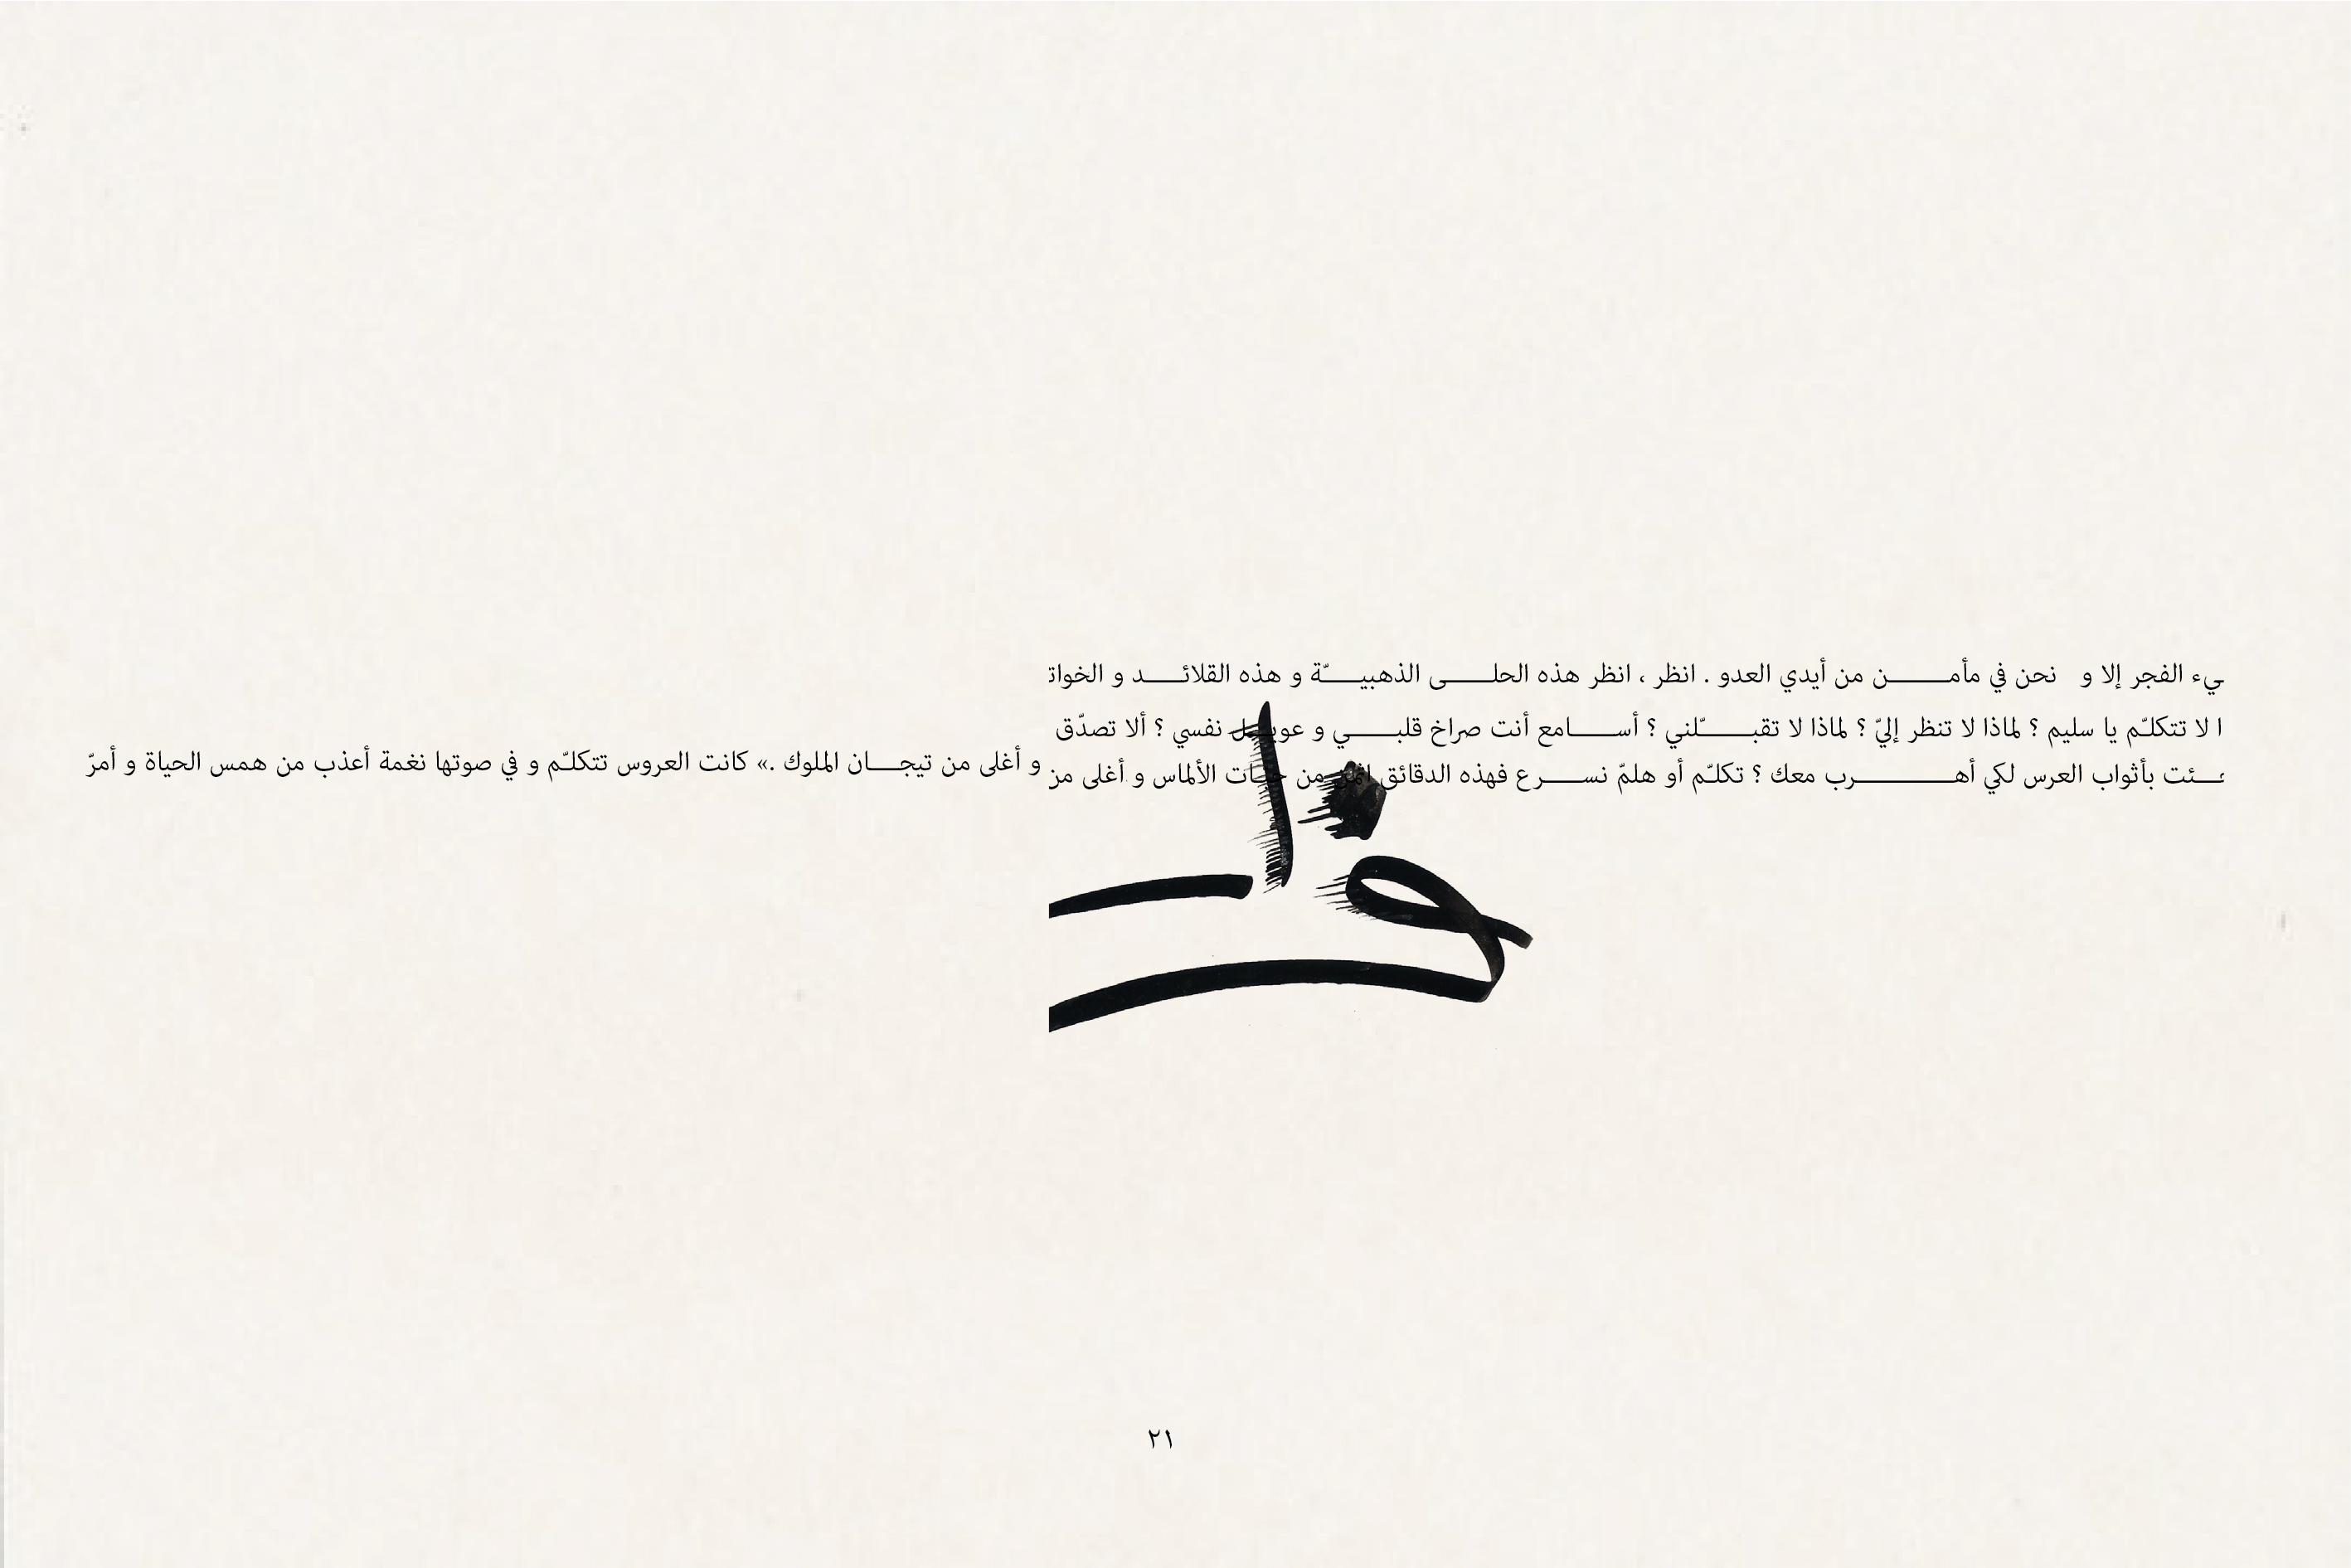 ـيء الفجر إلا و نحن في مأمـــن من أيدي العدو . انظر ، انظر هذه الحلـــى الذهبيـــّة و هذه القلائـــد و الخواتـ
ا لا تتكلـّم يا سليم ؟ لماذا لا تنظر إليّ ؟ لماذا لا تقبـــّلني ؟ أســـامع أنت صراخ قلبـــي و عويـــل نفسي ؟ ألا تصدّق
ـــئت بأثواب العرس لكي أهـــرب معك ؟ تكلـّم أو هلمّ نســـرع فهذه الدقائق من الألماس و أغلى من
و أغلى من تيجـــان الملوك .» كانت العروس تتكلـّم و في صوتها نغمة أعذب من همس الحياة و أمرّ
٢١